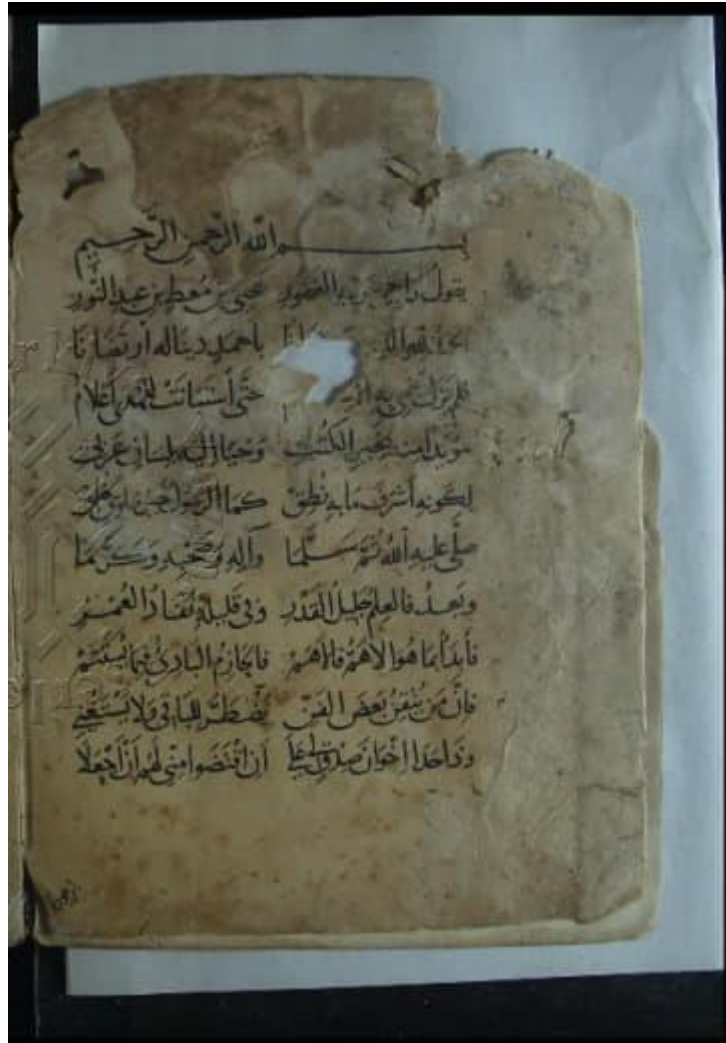 بسم الله الرحمن الرحيم
يقول راجي ربه الغفور يحيى بن معط بن عبد النور
الحمد لله الذي هدانا بأحمد دينا له ارتضانا
فلم يزل حتى استبانت للهدى أعلام
مؤيدا منه بخير الكتب وحيا إليه بلسان عربي
لكونه أشرف ما به نطق كما الرسول خير من خلق
صلى عليه الله ثم سلما وآله وصحبه وكرما
وبعد فالعلم جليل القدر وفي قليله نفاد العمر
فابدأ بما هو الأهم فالأهم فالحازم البادئ فيما يستتم
فإن من يتقن بعض الفن يضطر للباقي ولا يستغني
وذا حدا إخوان صدق لي على أن اقتضوا مني لهم أن أجعلا